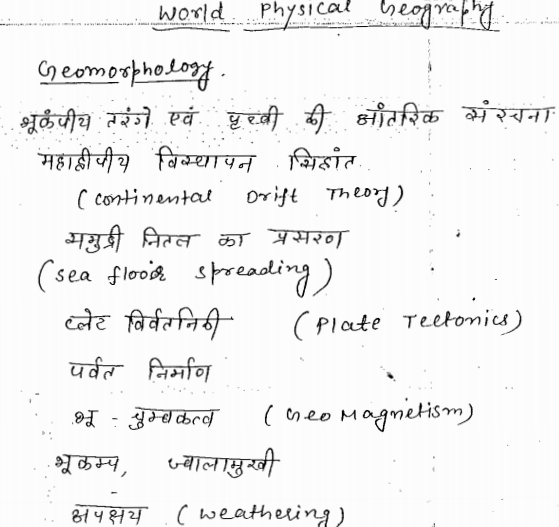 World Physical Geography
Geomorphology.
भूकंपीय तरंगे एवं पृथ्वी की आंतरिक संरचना
महाद्वीपीय विस्थापन सिद्धांत
(Continental Drift Theory)
समुद्री नितल का प्रसरण
(sea floor spreading)
प्लेट विर्वतनिकी (Plate Tectonics)
पर्वत निर्माण
भू - चुम्बकत्व (Geo Magnetism)
भूकम्प, ज्वालामुखी
अपक्षय (weathering)